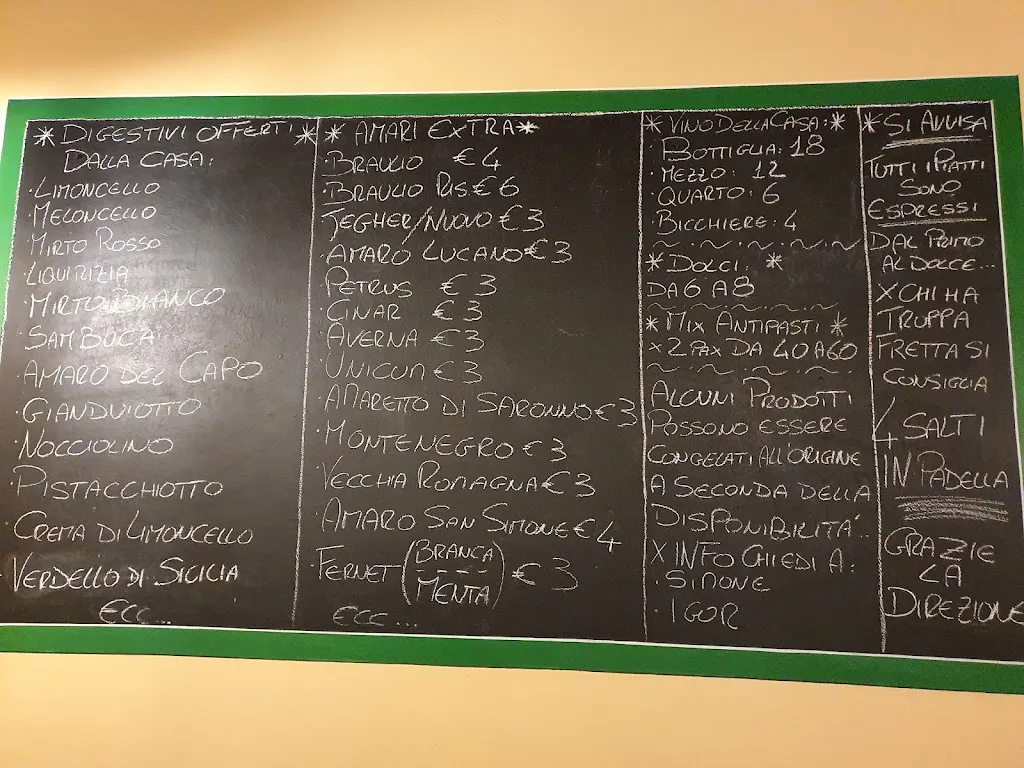 * DIGESTIVI OFFERTI *
DALLA CASA:
·LIMONCELLO
·MELONCELLO
·MIRTO ROSSO
·LIQUIRIZIA
·MIRTO BIANCO
·SAMBUCA
·AMARO DEL CAPO
·GIANDUIOTTO
·NOCCIOLINO
·PISTACCHIOTTO
·CREMA DI LIMONCELLO
·VERDELLO DI SICILIA
ECC...
* AMARI EXTRA *
·BRAULIO €4
·BRAULIO RIS €6
·JEGHER/NUOVO €3
·AMARO LUCANO €3
·PETRUS €3
·CINAR €3
·AVERNA €3
·UNICUM €3
·AMARETTO DI SARONNO €3
·MONTENEGRO €3
·VECCHIA ROMAGNA €3
·AMARO SAN SIMONE €4
·FERNET (BRANCA -- MENTA) €3
ECC...
* VINO DELLA CASA: *
·BOTTIGLIA: 18
·MEZZO: 12
·QUARTO: 6
·BICCHIERE: 4
* DOLCI: *
DA 6 A 8
* MIX ANTIPASTI *
x 2 PAX DA 40 A 60
ALCUNI PRODOTTI
POSSONO ESSERE
CONGELATI ALL'ORIGINE
A SECONDA DELLA
DISPONIBILITÀ..
X INFO CHIEDI A:
·SIMONE
·IGOR
* SI AVVISA
TUTTI I PIATTI
SONO
ESPRESSI
DAL PRIMO
AL DOLCE...
X CHI HA
TROPPA
FRETTA SI
CONSIGLIA
4 SALTI
IN PADELLA
GRAZIE
LA
DIREZIONE